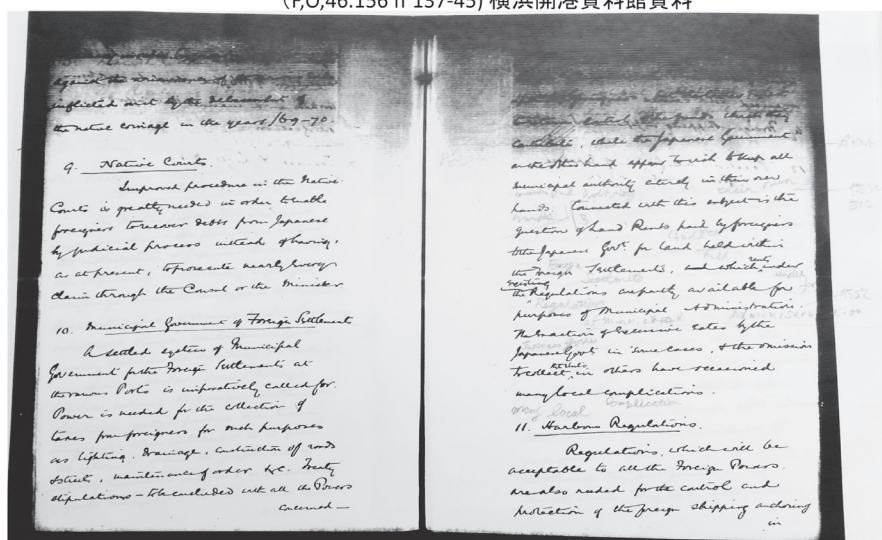 (F,O,46.156 ff 137-45) 横浜開港資料館資料
against the
inflicted by the debasement of
the native coinage in the years /69-70
9. Native Courts.
Improved procedure in the Native
Courts is greatly needed in order to enable
foreigners to recover debts from Japanese
by judicial process instead of having,
as at present, to prosecute nearly every
claim through the Consul or the Minister
10. Municipal Government of Foreign Settlements
A settled system of Municipal
Government for the Foreign Settlements at
the various Ports is imperatively called for.
Power is needed for the collection of
taxes from foreigners for such purposes
as lighting, drainage, construction of roads
& streets, maintenance of order &c. Treaty
stipulations – to be concluded with all the Powers
concerned —
contribute, while the Japanese Government
on the other hand appear to wish to keep all
municipal authority entirely in their own
hands. Connected with this subject is the
question of Land Rents paid by foreigners
to the Japanese Govt. for land held within
the Foreign Settlements, and which under
existing
the Regulations are partly available for
purposes of Municipal Administration.
The exaction of excessive rates by the
Japanese Govt. in some cases, & the omission
to collect in others have occasioned
many local complications.
many local complication
11. Harbour Regulations.
Regulations, which will be
acceptable to all the Foreign Powers
are also needed for the control and
protection of the foreign shipping anchoring
in